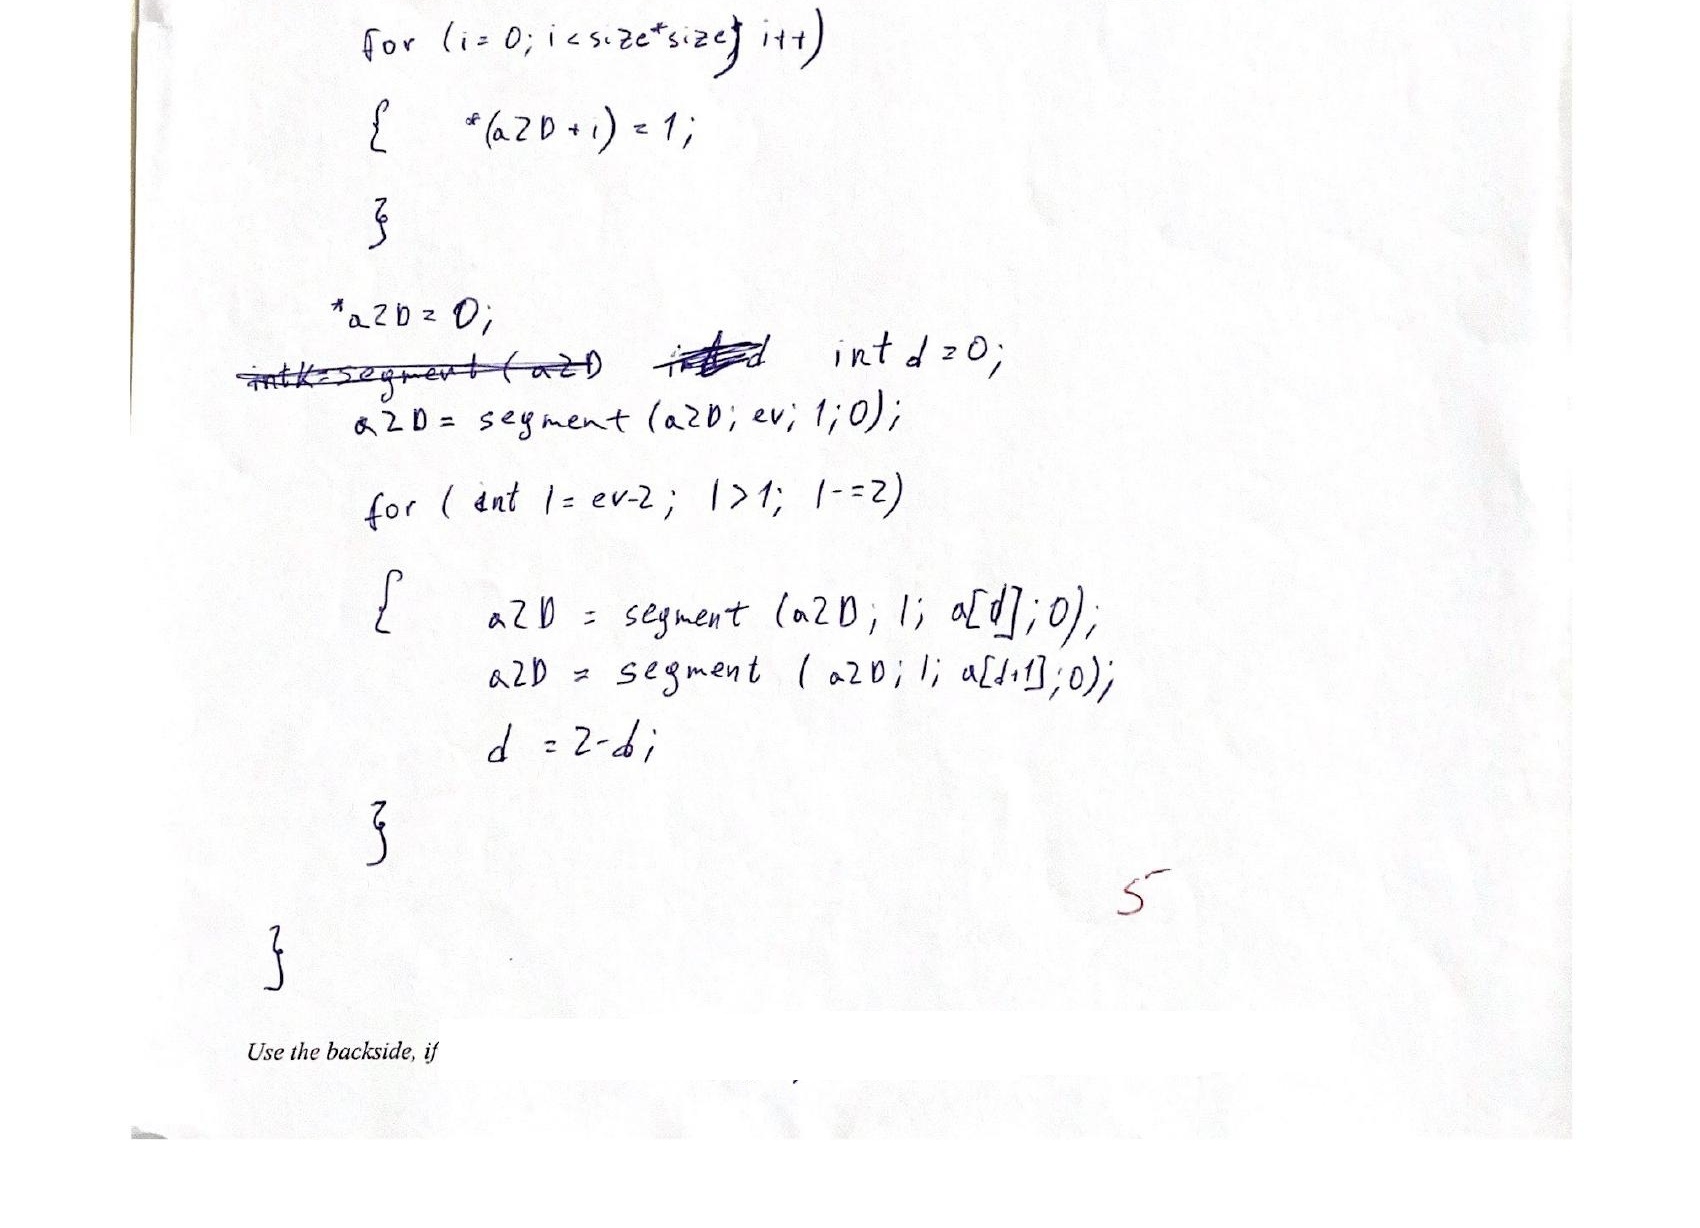 for (i = 0; i < size*size; i++)
{ *(a2D + i) = 1;
}
*a2D = 0;
int k = segment (a2D int d = 0;
a2D = segment (a2D; ev; 1; 0);
for ( int l = ev-2; l > 1; l -= 2)
{ a2D = segment (a2D; l; a[d]; 0);
a2D = segment ( a2D; l; a[d+1]; 0);
d = 2-d;
}
5
}
Use the backside, if